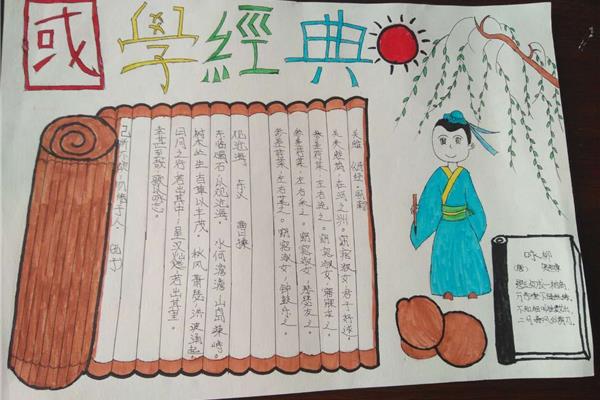 國學經典
关雎 《诗经·国风》
关关雎鸠,在河之洲。窈窕淑女,君子好逑。
参差荇菜,左右流之。窈窕淑女,寤寐求之。
参差荇菜,左右采之。窈窕淑女,琴瑟友之。
参差荇菜,左右芼之。窈窕淑女,钟鼓乐之。
观沧海 东汉 曹操
东临碣石,以观沧海。水何澹澹,山岛竦峙。
树木丛生,百草丰茂。秋风萧瑟,洪波涌起。
日月之行,若出其中;星汉灿烂,若出其里。
幸甚至哉,歌以咏志。
己所不欲,勿施于人。
咏柳
(唐) 贺知章
碧玉妆成一树高,
万条垂下绿丝绦。
不知细叶谁裁出,
二月春风似剪刀。